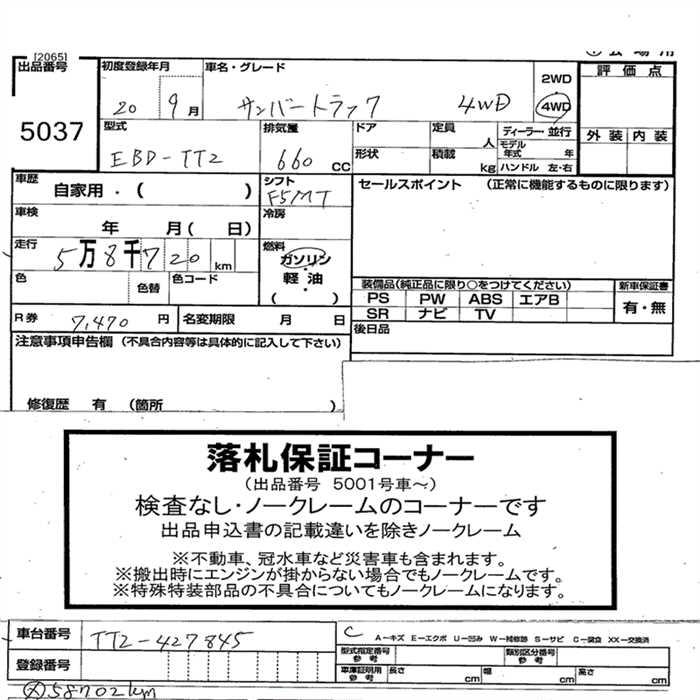 [2065]
出品番号
5037
初度登録年月
20 9月
車名・グレード
サンバートラック 4WD
2WD
4WD
評価点
外装 内装
型式
EBD-TT2
排気量
660 CC
ドア
形状
定員
人
積載
kg
ディーラー・並行
モデル
年式 年
ハンドル 左・右
車歴
自家用・( )
シフト
F5MT
セールスポイント (正常に機能するものに限ります)
車検
年 月( 日)
冷房
走行
5万8千720km
燃料
ガソリン
・
軽油
・
( )
色
色替
色コード
装備品(純正品に限り○をつけてください)
PS PW ABS エアB
SR ナビ TV
新車保証書
有・無
R券
7,470 円
名変期限 月 日
後日品
注意事項申告欄(不具合内容等は具体的に記入して下さい)
修復歴 有 (箇所 )
落札保証コーナー
(出品番号 5001号車~)
検査なし・ノークレームのコーナーです
出品申込書の記載違いを除きノークレーム
※不動車、冠水車など災害車も含まれます。
※搬出時にエンジンが掛からない場合でもノークレームです。
※特殊特装部品の不具合についてもノークレームになります。
車台番号
TT2-427845
登録番号
C
A-キズ E-エクボ U-凹み W-補修跡 S-サビ C-腐食 XX-交換済
型式指定番号
参考
類別区分番号
参考
車庫証明用
参考
長さ cm
幅 cm
高さ cm
58702km